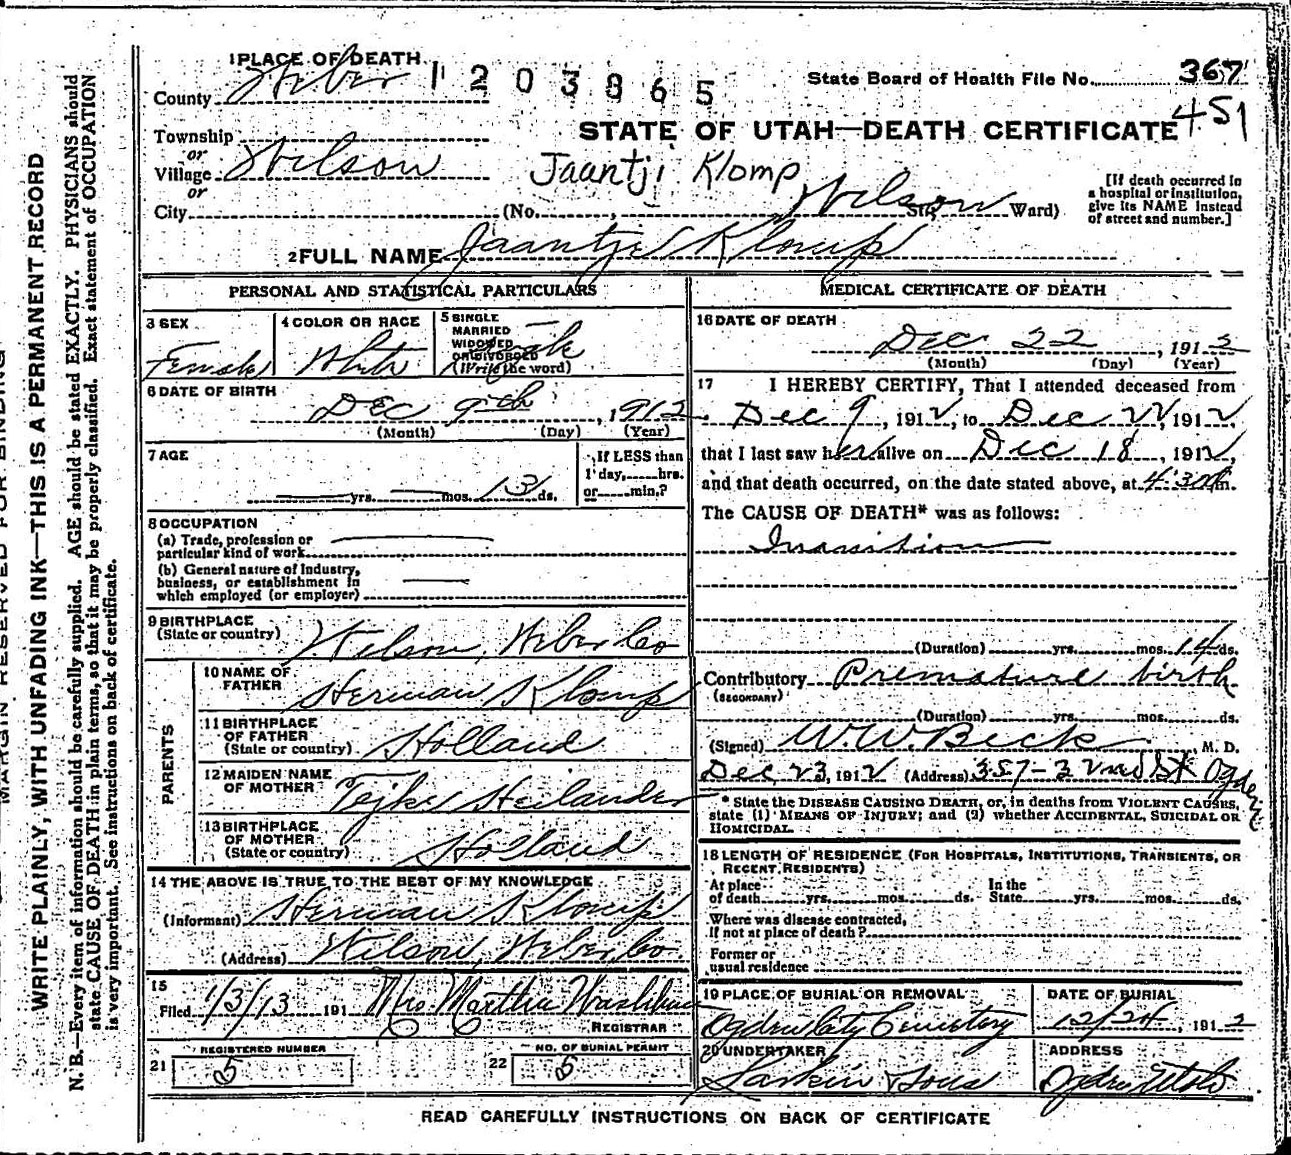 MARGIN RESERVED FOR BINDING
WRITE PLAINLY, WITH UNFADING INK—THIS IS A PERMANENT RECORD
N. B.—Every item of information should be carefully supplied. AGE should be stated EXACTLY. PHYSICIANS should
state CAUSE OF DEATH in plain terms, so that it may be properly classified. Exact statement of OCCUPATION
is very important. See instructions on back of certificate.
1 PLACE OF DEATH
County Weber
1203865
State Board of Health File No. 367
451
Township
or
Village Wilson
or
City (No. , Wilson St.; Ward)
STATE OF UTAH—DEATH CERTIFICATE
Jaantji Klomp
[If death occurred in
a hospital or institution,
give its NAME instead
of street and number.]
2 FULL NAME Jaantje Klomp
PERSONAL AND STATISTICAL PARTICULARS
3 SEX
Female
4 COLOR OR RACE
White
5 SINGLE
MARRIED
WIDOWED
OR DIVORCED
(Write the word)
Single
6 DATE OF BIRTH
Dec 9th, 1912
(Month) (Day) (Year)
7 AGE
— yrs. — mos. 13 ds.
If LESS than
1 day, hrs.
or min.?
8 OCCUPATION
(a) Trade, profession or
particular kind of work
(b) General nature of industry,
business, or establishment in
which employed (or employer)
9 BIRTHPLACE
(State or country) Wilson, Weber Co
PARENTS
10 NAME OF
FATHER Herman Klomp
11 BIRTHPLACE
OF FATHER
(State or country) Holland
12 MAIDEN NAME
OF MOTHER Heilander
13 BIRTHPLACE
OF MOTHER
(State or country) Holland
14 THE ABOVE IS TRUE TO THE BEST OF MY KNOWLEDGE
(Informant) Herman Klomp
(Address) Wilson, Weber Co.
15
Filed 1/3/13 191 Mrs Martha Washburn
REGISTRAR
21 REGISTERED NUMBER
5
22 NO. OF BURIAL PERMIT
5
MEDICAL CERTIFICATE OF DEATH
16 DATE OF DEATH
Dec 22, 1912
(Month) (Day) (Year)
17 I HEREBY CERTIFY, That I attended deceased from
Dec 9, 1912, to Dec 22, 1912,
that I last saw her alive on Dec 18, 1912,
and that death occurred, on the date stated above, at 4:30 m.
The CAUSE OF DEATH* was as follows:
Inanition
(Duration) yrs. mos. 14 ds.
Contributory Premature birth
(SECONDARY)
(Duration) yrs. mos. ds.
(Signed) W. W. Beck, M. D.
Dec 23, 1912 (Address) 357-32nd St Ogden
* State the DISEASE CAUSING DEATH, or, in deaths from VIOLENT CAUSES,
state (1) MEANS OF INJURY; and (2) whether ACCIDENTAL, SUICIDAL OR
HOMICIDAL.
18 LENGTH OF RESIDENCE (FOR HOSPITALS, INSTITUTIONS, TRANSIENTS, OR
RECENT RESIDENTS)
At place
of death yrs. mos. ds.
In the
State yrs. mos. ds.
Where was disease contracted,
If not at place of death?
Former or
usual residence
19 PLACE OF BURIAL OR REMOVAL
Ogden City Cemetery
DATE OF BURIAL
12/24, 1912
20 UNDERTAKER
Larkin & Sons
ADDRESS
Ogden Utah
READ CAREFULLY INSTRUCTIONS ON BACK OF CERTIFICATE